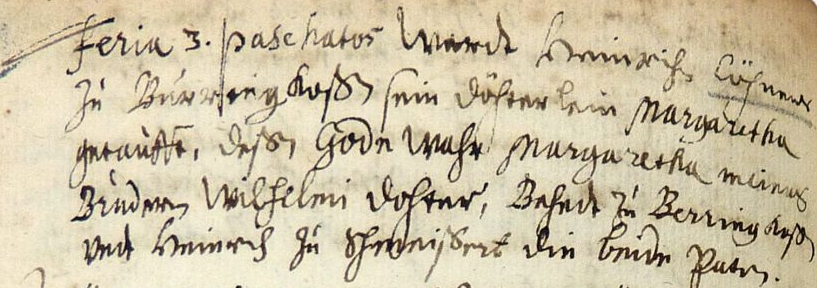 Feria 3. paschatos wardt Heinrichs Löhners
Zu Burringkoßn sein döhterlein Margaretha
getaufft, deßn Gode wahr Margaretha meines
Brudern Wilhelmi dohter, Behedt zu Berringkoßn
undt Heinrich zu Schweissert die beide Paten.